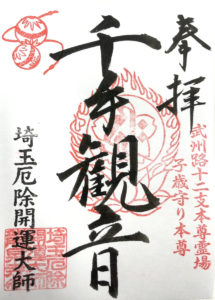 奉拝
武州路十二支本尊霊場
子歳守り本尊
千手観音
埼玉厄除開運大師